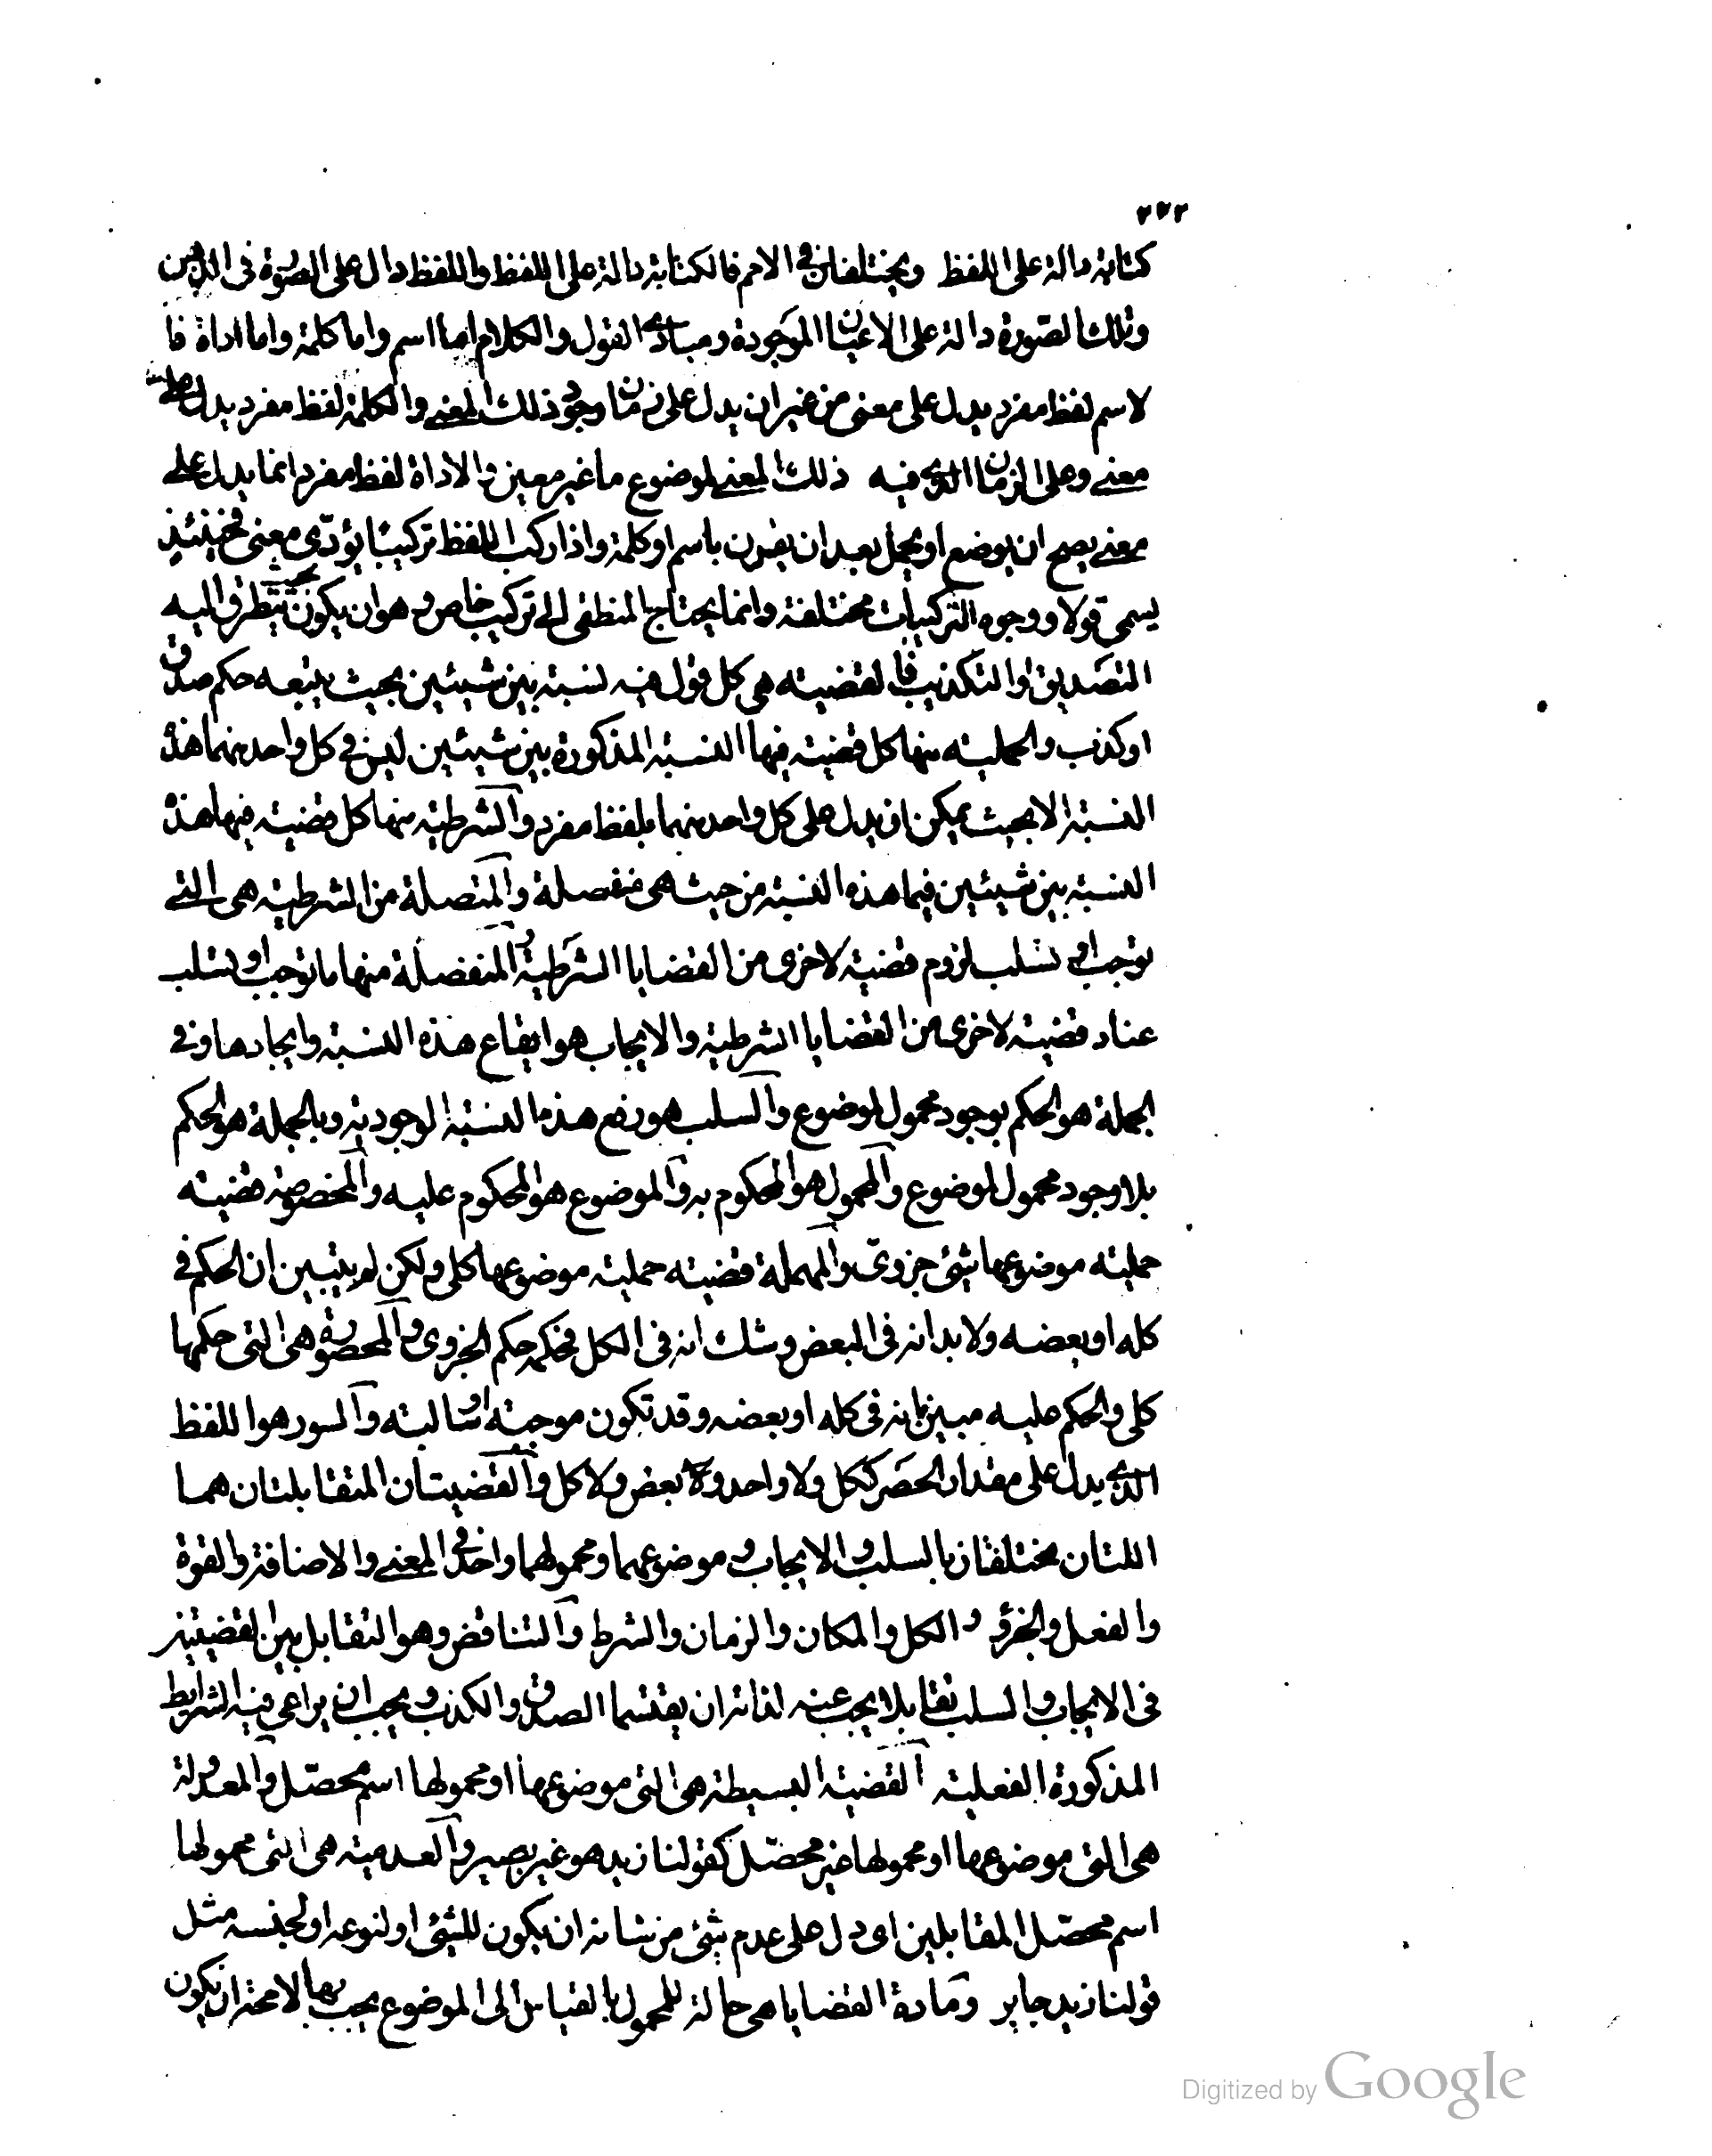 ٣٧٣
كتابة دالة على اللفظ ويختلفان في الامم فالكتابة دالة على اللفظ واللفظ دال على الصورة في الذهن
وتلك الصورة دالة على الاعيان الموجودة ومبادى القول والكلام اما اسم واما كلمة واما اداة فا
لاسم لفظ مفرد يدل على معنى من غير ان يدل على زمان وجود ذلك المعنى والكلمة لفظ مفرد يدل على
معنى وعلى الزمان الذى فيه ذلك المعنى لموضوع ما غير معين والاداة لفظ مفرد انما يدل على
معنى يصح ان يوضع او يحمل بعد ان يقرن باسم او كلمة واذا ركب اللفظ تركيبا يؤدّى معنى فحينئذ
يسمى قولا ووجوه التركيبات مختلفة وانما يحتاج المنطقى الى تركيب خاص وهو ان يكون بحيث يتطرق اليه
التصديق والتكذيب فالقضية هى كل قول فيه نسبة بين شيئين بحيث يتبعه حكم صدق
او كذب والحملية منها كل قضية فيها النسبة المذكورة بين شيئين ليس في كل واحد منهما هذه
النسبة الا بحيث يمكن ان يدل على كل واحد منهما بلفظ مفرد والشرطية منها كل قضية فيها هذه
النسبة بين شيئين فيهما هذه النسبة من حيث هى منفصلة والمتصلة من الشرطية هى التى
توجب او تسلب لزوم قضية لاخرى من القضايا الشرطية والمنفصلة منها ما توجب او تسلب
عناد قضية لاخرى من القضايا الشرطية والايجاب هو ايقاع هذه النسبة وايجادها وفى
الجملة هو الحكم بوجود محمول لموضوع والسلب هو رفع هذه النسبة الوجودية وبالجملة هو الحكم
بلا وجود محمول لموضوع والمحمول هو المحكوم به والموضوع هو المحكوم عليه والمخصوصة قضية
حملية موضوعها شئ جزوى والمهملة قضية حملية موضوعها كلى ولكن لم يتبين ان الحكم فى
كله او بعضه ولا بد انه فى البعض وشك انه فى الكل فحكمه حكم الجزوى والمحصورة هى التى حكمها
كلى والحكم عليه مبين بانه فى كله او بعضه وقد تكون موجبة او سالبة والسور هو اللفظ
الذى يدل على مقدار الحصر ككل ولا واحد ولا بعض ولا كل والقضيتان المتقابلتان هما
اللتان مختلفان بالسلب والايجاب وموضوعهما ومحمولهما واحد فى المعنى والاضافة والقوة
والفعل والجزؤ والكل والمكان والزمان والشرط والتناقض وهو التقابل بين القضيتين
فى الايجاب والسلب تقابلا يجب عنه لذاته ان يقتسما الصدق والكذب ويجب ان يراعى فيه الشرايط
المذكورة الفعلية القضية البسيطة هى التى موضوعها او محمولها اسم محصّل والمعدولة
هى التى موضوعها او محمولها غير محصّل كقولنا زيد هو غير بصير والعدمية هى التى محمولها
اسم محصّل المقابلين اى دل على عدم شئ من شانه ان يكون للشئ او لنوعه او لجنسه مثل
قولنا زيد جاير ومادة القضايا هى حالة للمحمول بالقياس الى الموضوع يجب بها لا محة ان يكون
Digitized by Google